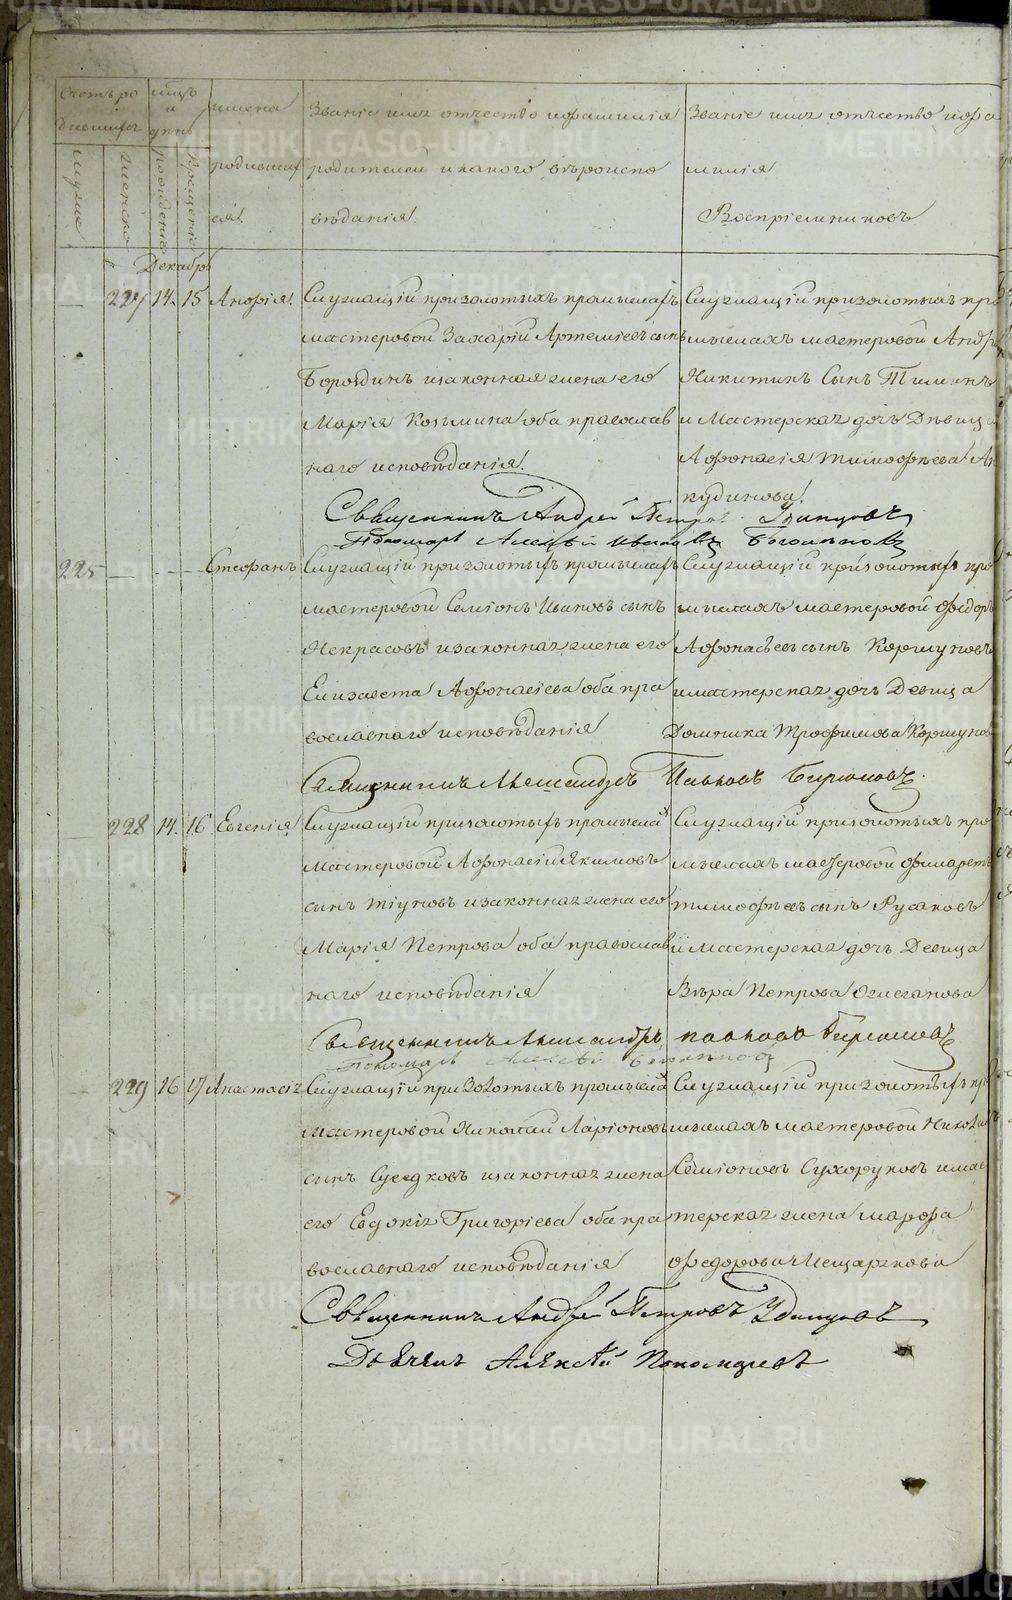 Счетъ ро
дившихся
мцъ
и
день
имена
родивших
ся.
Званіе имя отчество и фамилія
родителей и какого вѣроиспо
вѣданія.
Званіе имя отчество и фа
милія
Воспріемниковъ
мужие
женско
рожденія
крещенія
Декабрь
227 14. 15 Анфія.
Служащій при золотыхъ промыслахъ
мастеровой Захарій Артеміевъ сынъ
Бороздинъ и законная жена его
Марія Козьмина оба православ
наго исповѣданія.
Служащій при золотыхъ про
мыслахъ мастеровой Андр
Никитинъ Сынъ
и Мастерская дочь Дѣвица
Афонасія Тимофѣева Ан
кудинова.
Священникъ Андрей Петровъ Удинцовъ
Пономарь Алексѣй Ивановъ
225 — — — Стефанъ
Служащій при золотыхъ промыслахъ
мастеровой Семіонъ Ивановъ сынъ
Некрасовъ и законная жена его
Елизавета Афонасіева оба пра
вославнаго исповѣданія
Служащій при золотыхъ про
мыслахъ мастеровой Федоръ
Афонасьевъ сынъ Коршуновъ
и мастерская дочь Девица
Домника Трофимова Коршунов
Священникъ Александръ Павловъ Бирюковъ.
228 14. 16 Евгенія
Служащій при золотыхъ промысла
Мастеровой Афонасій Якимовъ
сынъ Тіуновъ и законная жена его
Марія Петрова оба православ
наго исповѣданія
Служащій при золотыхъ про
мыслахъ мастеровой Филаретъ
тимофѣевъ сынъ Русаковъ
и мастерская дочь Девица
Вѣра Петрова Ожеганова
Священникъ Александръ Павловъ Бирюковъ
Пономарь Алексѣй
229 16 17 Анастасія
Служащій при Золотыхъ промысла
мастеровой Николай Ларіоновъ
сынъ Суседковъ и законная жена
его Евдокія Григоріева оба пра
вославнаго исповѣданія
Служащій при золотыхъ пр
мыслахъ мастеровой Никола
Семіоновъ Сухоруковъ и мас
терская жена марфа
федорова Мещерякова
Священникъ Андрей Петровъ Удинцовъ
Дьячекъ Алексѣй
METRIKI.GASO-URAL.RU